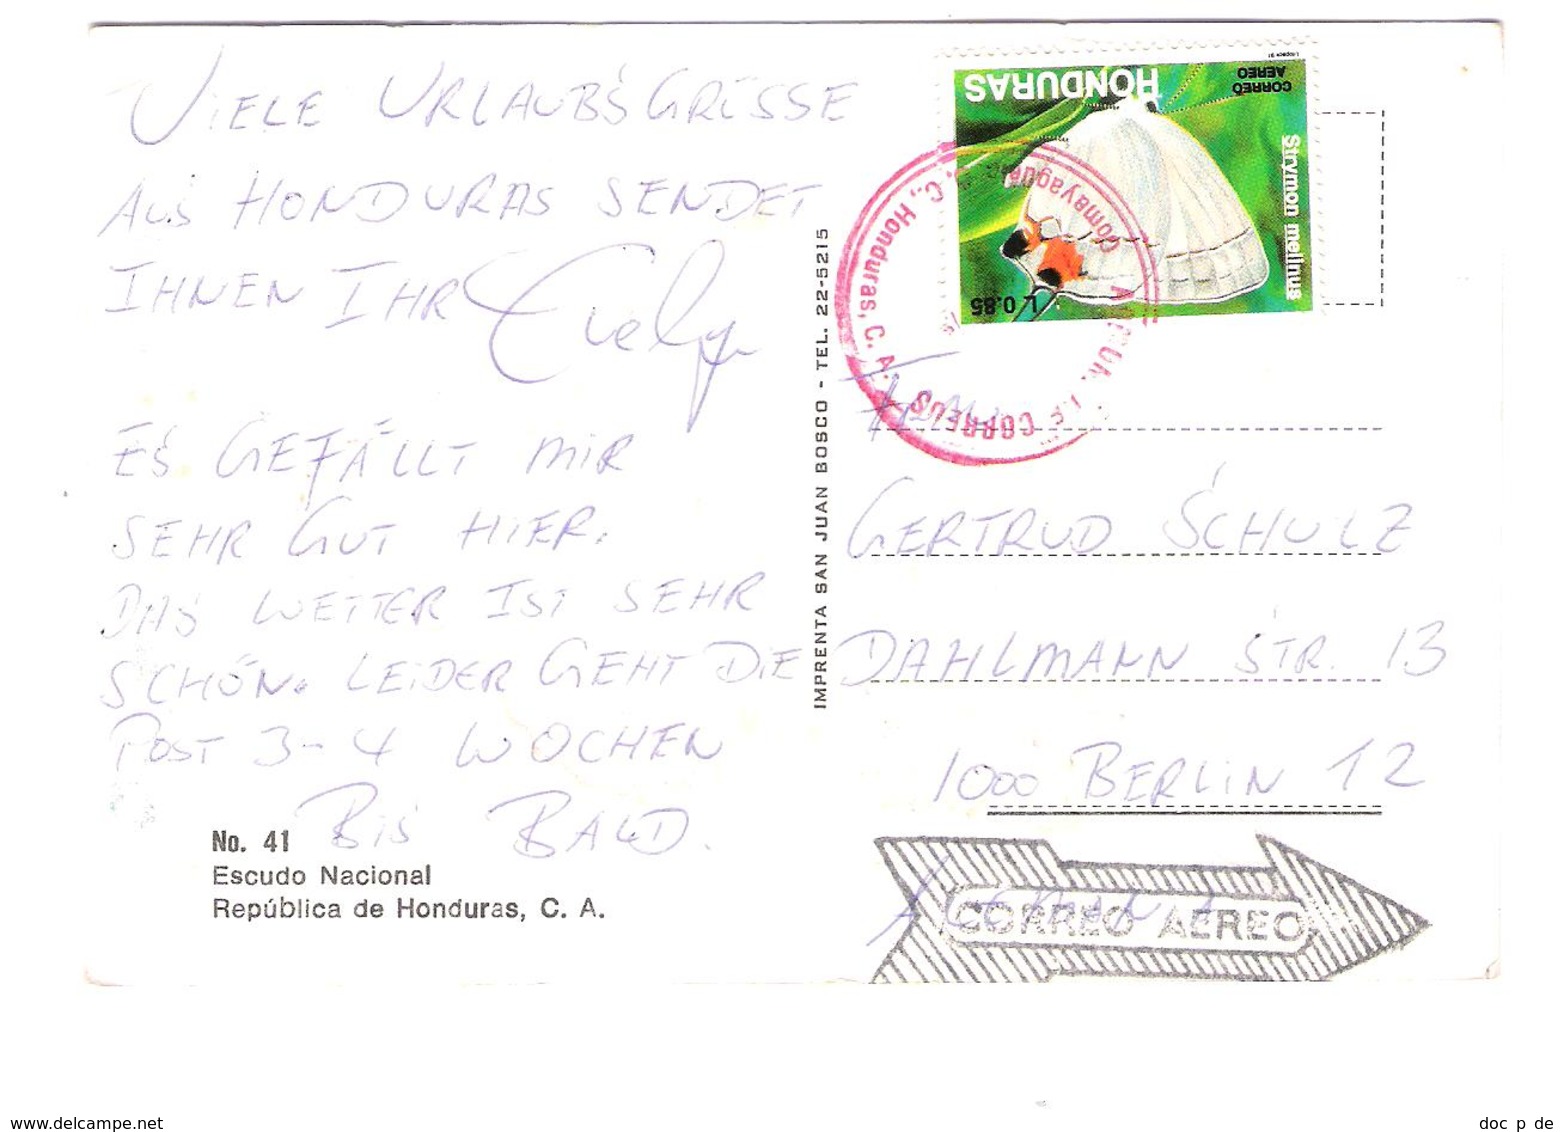 VIELE URLAUBSGRÜSSE
AUS HONDURAS SENDET
IHNEN IHR
ES GEFÄLLT MIR
SEHR GUT HIER.
DAS WETTER IST SEHR
SCHÖN. LEIDER GEHT DIE
POST 3-4 WOCHEN
BIS BALD.
No. 41
Escudo Nacional
República de Honduras, C. A.
IMPRENTA SAN JUAN BOSCO - TEL. 22-5215
HONDURAS
CORREO
AEREO
Strymon melinus
L 0.85
CORREOS
Comayaguela
C., Honduras, C. A.
GERTRUD SCHULZ
DAHLMANN STR. 13
1000 BERLIN 12
CORREO AEREO
www.delcampe.net
doc_p_de